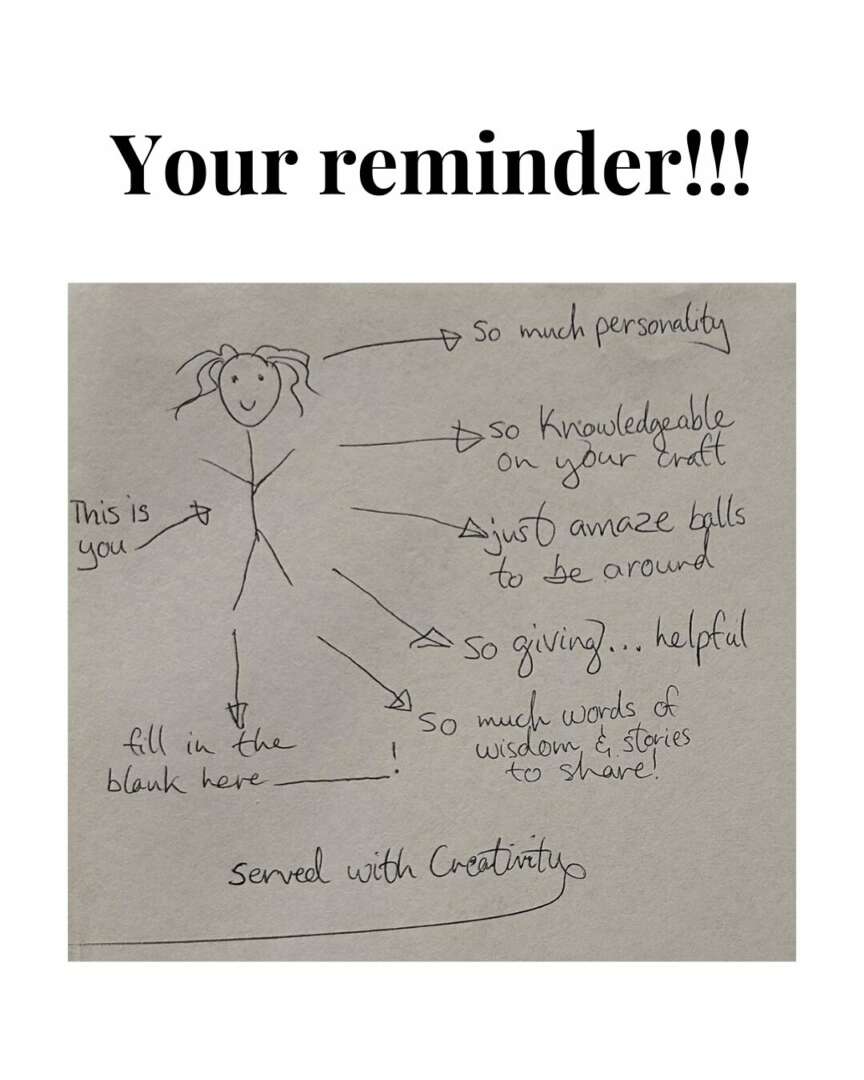 Your reminder!!!
So much personality
so Knowledgeable
on your craft
This is
you
just amaze balls
to be around
so giving... helpful
so much words of
wisdom & stories
to share!
fill in the
blank here ______!
served with Creativity